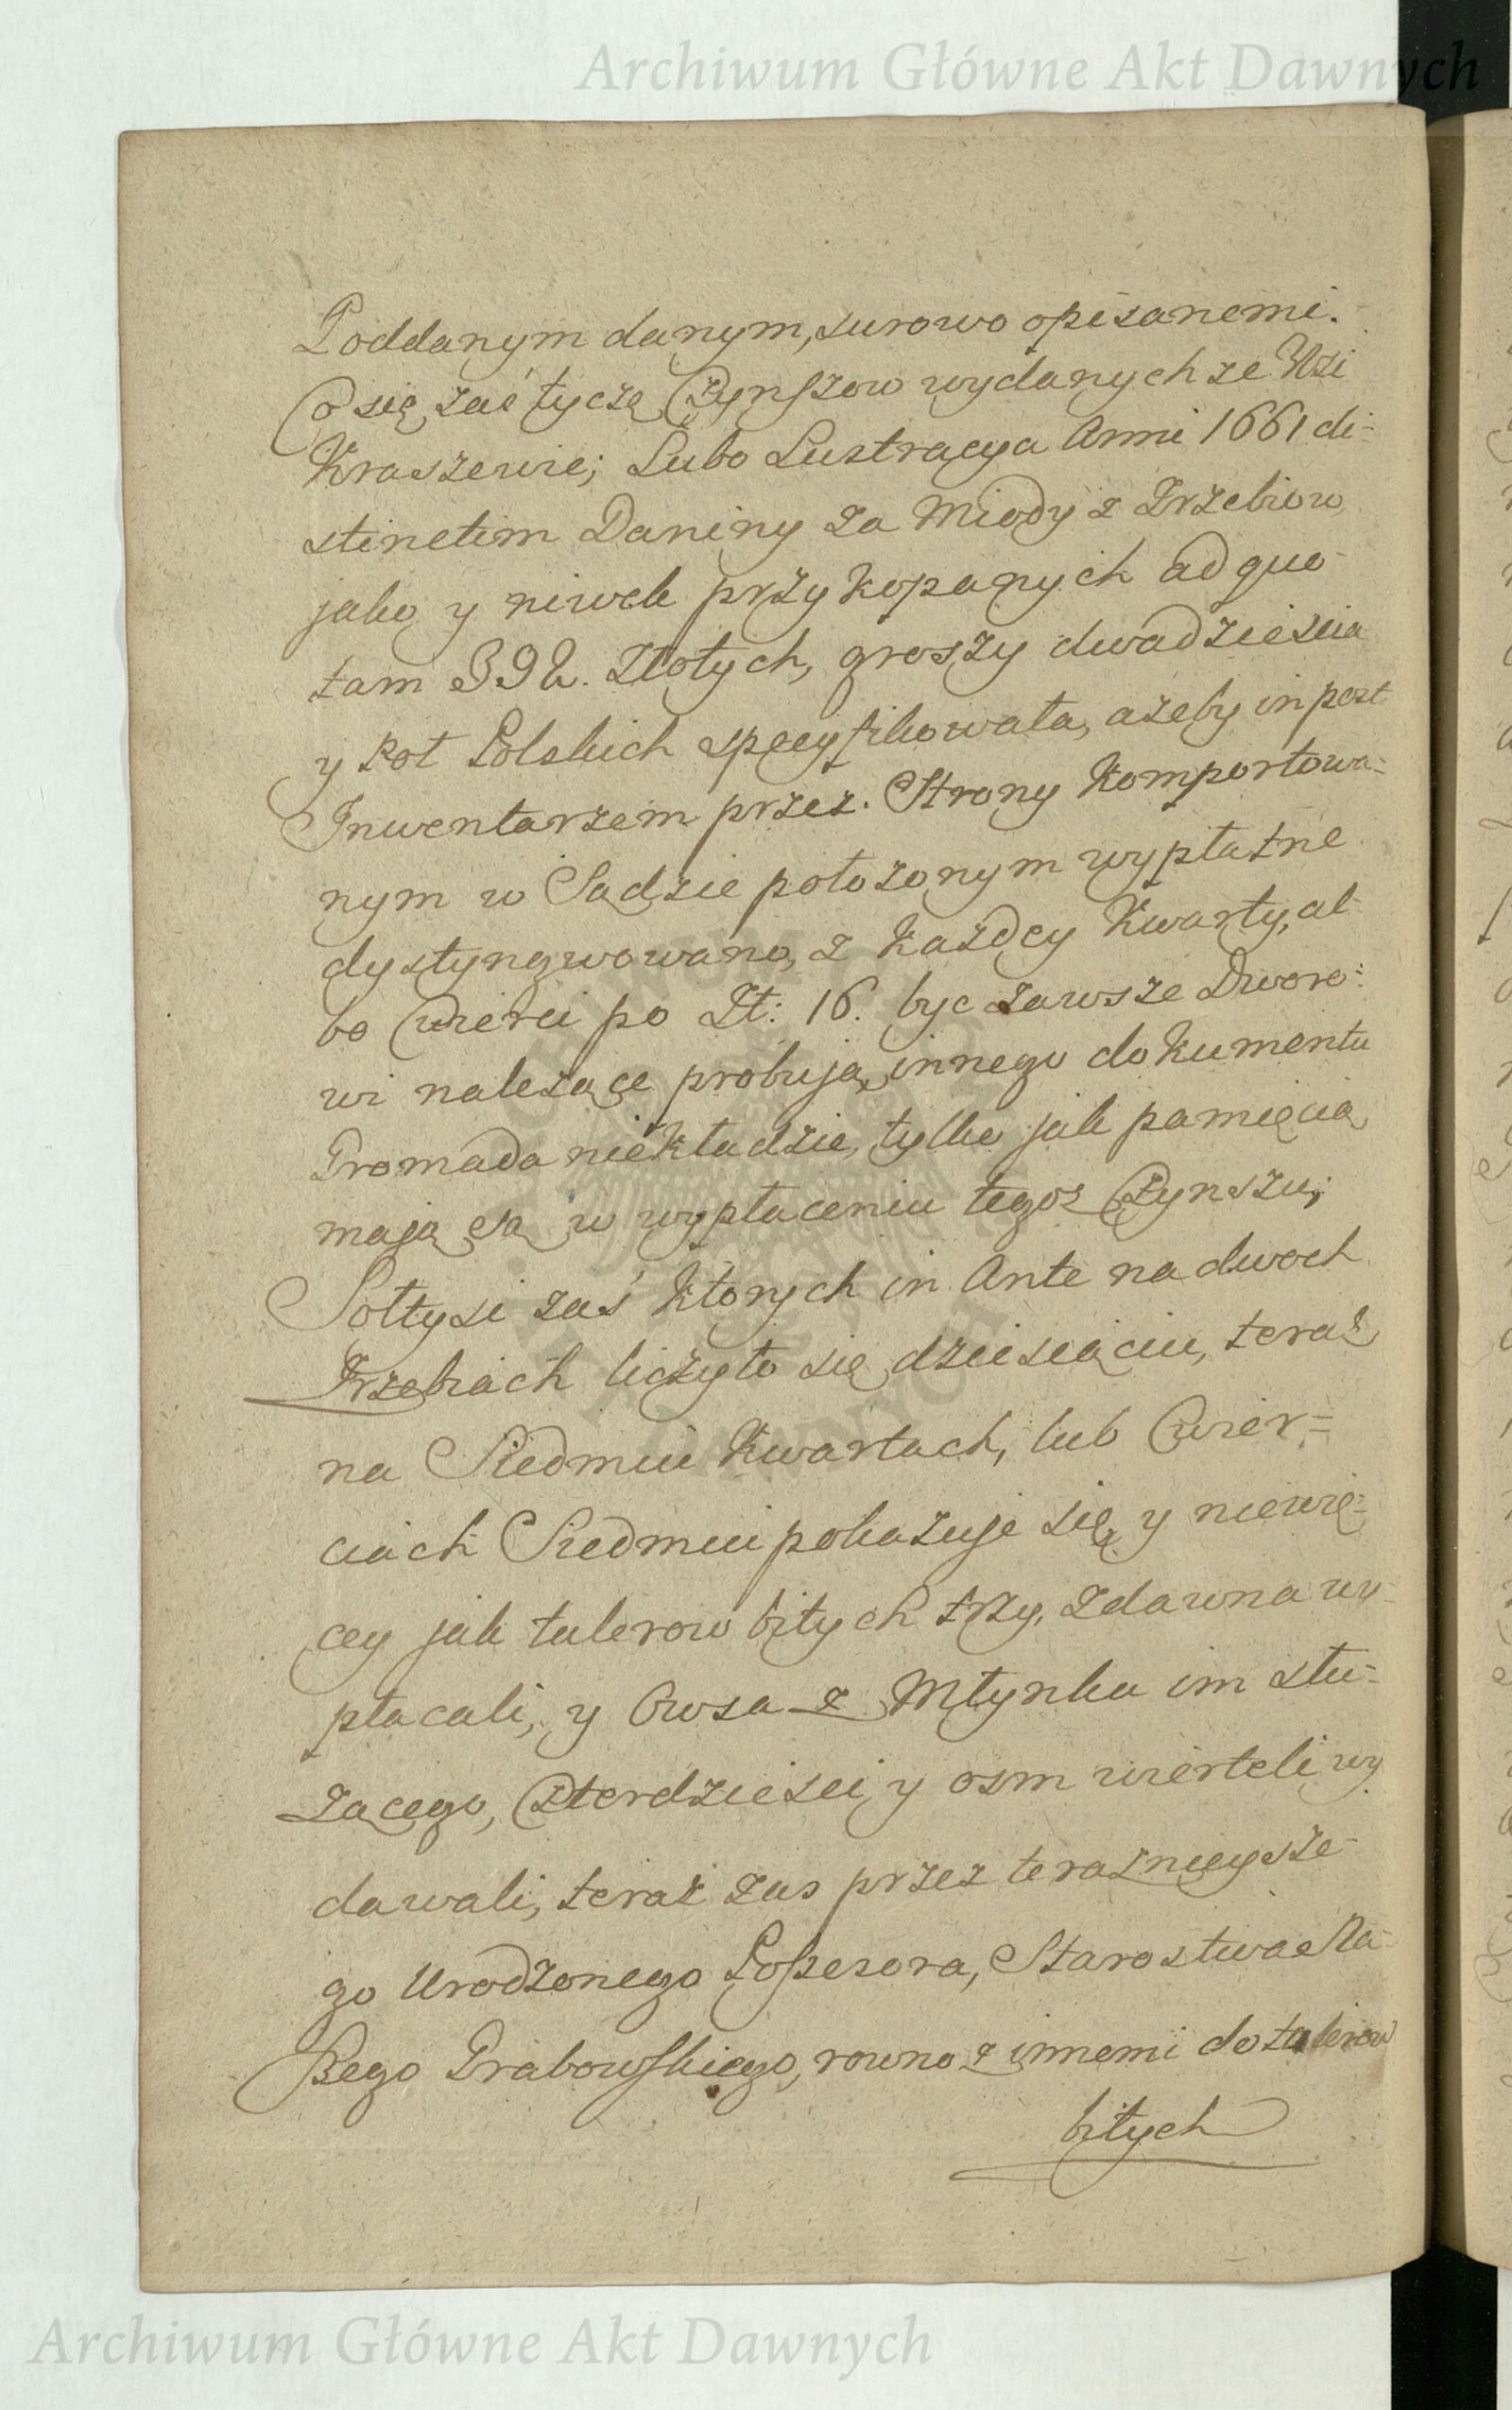 Archiwum Główne Akt Dawnych
Poddanym danym, surowo opisanemi.
Co się zaś tycze Czynszow wydanych ze Wsi
Kraszewie; Lubo Lustracya Anni 1661 di-
stinctim Daniny za Miody z Zrzebiow
jako y niwek przykopanych ad quo-
tam 392. Złotych, groszy dwadzieścia
y poł Polskich specyfikowała, azeby in post
Inwentarzem przez Strony komportowa-
nym w Sądzie położonym wypłatne
dystyngwowano, z każdey Kwarty, al-
bo Cwierci po Zł: 16. byc zawsze Dworo-
wi należące probują, innego dokumentu
Gromada niekładzie, tylko jak pamięcią
mają są w wypłaceniu tegoż Czynszu;
Sołtysi zaś ktorych in Ante na dwoch
Zrzebiach liczyło się dziesiąciu, teraz
na Siedmiu Kwartach, lub Cwier-
ciach Siedmiu pokazuje się, y niewię-
cey jak talerow bitych trzy, zdawna wy-
płacali, y Owsa z Młynka im słu-
żącego, czterdzieści y osm wierteli wy
dawali, teraz zas przez teraznieysze-
go Urodzonego Possesora, Starostwa Na-
Bego Grabowskiego, rowno z innemi do talerow
bitych
Archiwum Główne Akt Dawnych